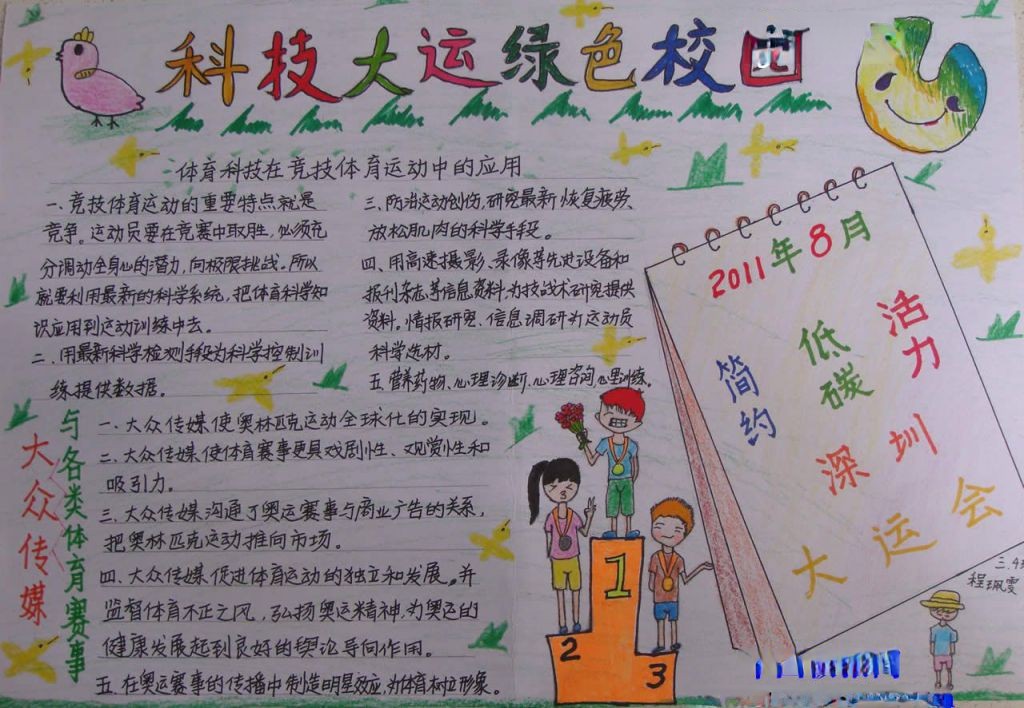 科技大运绿色校园
体育科技在竞技体育运动中的应用
一、竞技体育运动的重要特点就是
竞争。运动员要在竞赛中取胜,必须充
分调动全身心的潜力,向极限挑战。所以
就要利用最新的科学系统,把体育科学知
识应用到运动训练中去。
二、用最新科学检测手段为科学控制训
练提供数据。
三、防治运动创伤,研究最新恢复疲劳、
放松肌肉的科学手段。
四、用高速摄影、录像等先进设备和
报刊杂志等信息资料,为技战术研究提供
资料。情报研究、信息调研为运动员
科学选材。
五、营养药物、心理诊断、心理咨询、心理训练。
大众传媒
与各类体育赛事
一、大众传媒使奥林匹克运动全球化的实现。
二、大众传媒使体育赛事更具戏剧性、观赏性和
吸引力。
三、大众传媒沟通了奥运赛事与商业广告的关系,
把奥林匹克运动推向市场。
四、大众传媒促进体育运动的独立和发展。并
监督体育不正之风,弘扬奥运精神,为奥运的
健康发展起到良好的舆论导向作用。
五、在奥运赛事的传播中制造明星效应,为体育树立形象。
2011年8月
简约
低碳
活力
深圳
大运会
三.4班
程珮雯
1
2
3